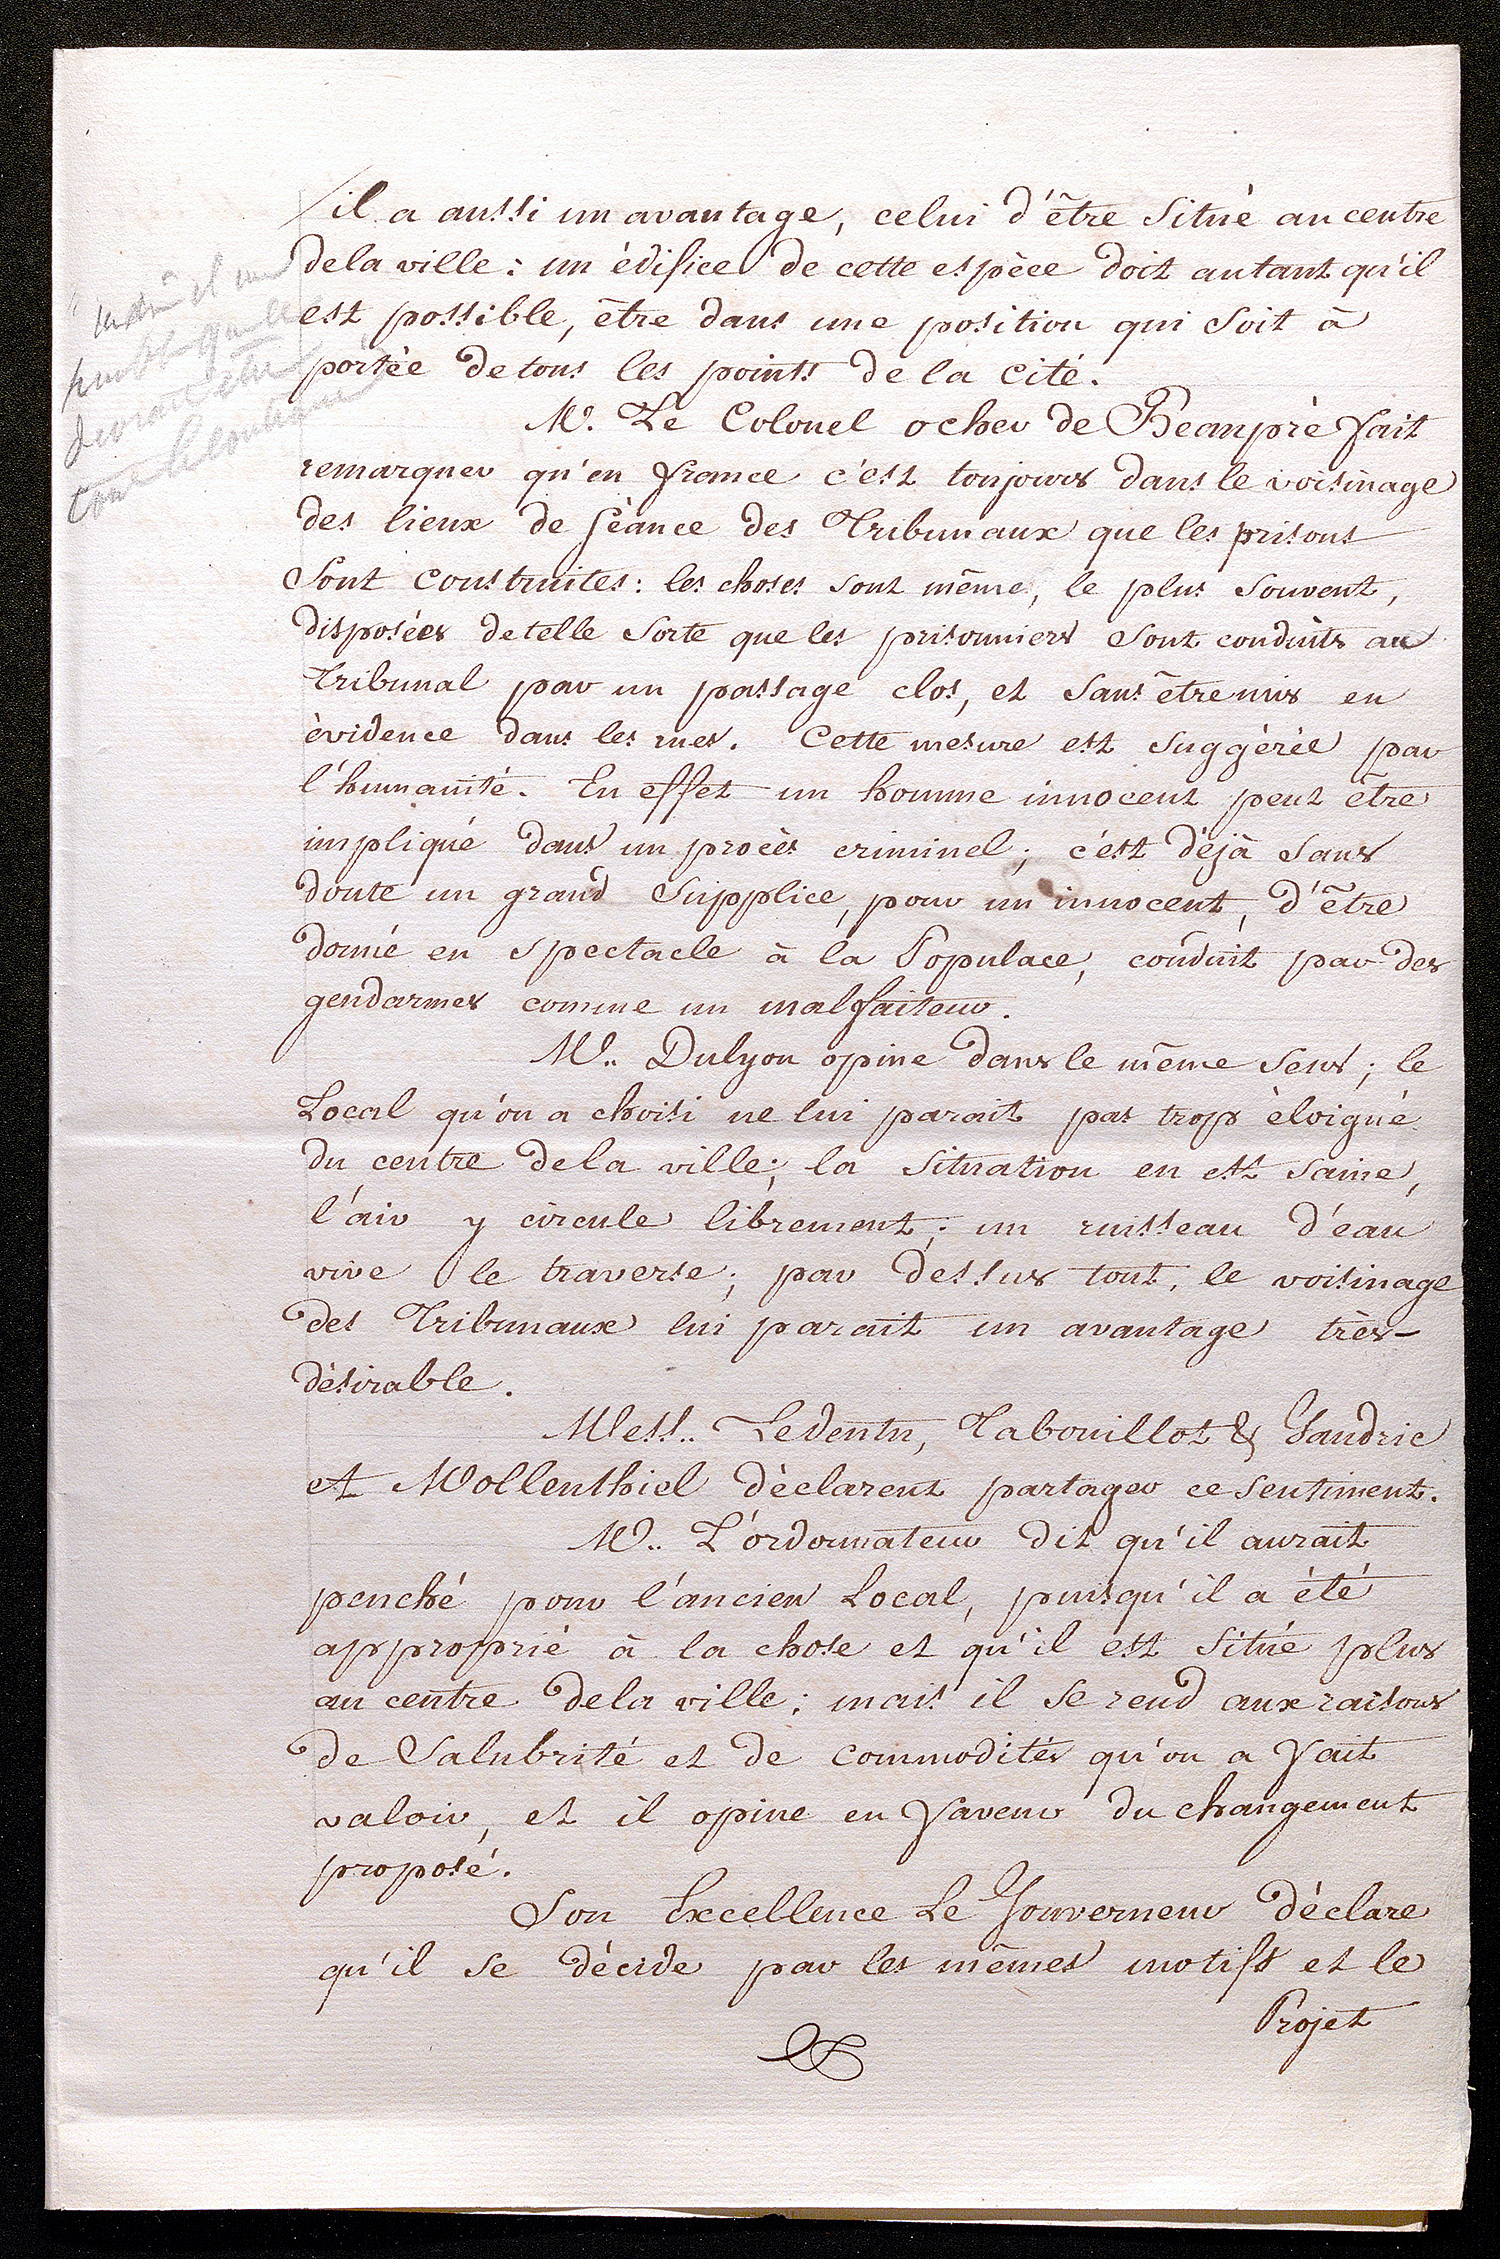 il a aussi un avantage, celui d'être situé au centre
de la ville : un édifice de cette espèce doit autant qu'il
est possible, être dans une position qui soit à
portée de tous les points de la cité.
M. Le Colonel ocher de Beaupré fait
remarquer qu'en france c'est toujours dans le voisinage
des lieux de séance des Tribunaux que les prisons
sont construites : les choses sont même, le plus souvent,
disposées de telle sorte que les prisonniers sont conduits au
Tribunal par un passage clos, et sans être mis en
évidence dans les rues. Cette mesure est suggérée par
l'humanité. En effet un homme innocent peut être
impliqué dans un procès criminel ; c'est déjà sans
doute un grand supplice, pour un innocent, d'être
donné en spectacle à la Populace, conduit par des
gendarmes comme un malfaiteur.
M.. Dulyon opine dans le même sens ; le
Local qu'on a choisi ne lui parait pas trop éloigné
du centre de la ville ; la situation en est saine,
l'air y circule librement ; un ruisseau d'eau
vive le traverse ; par dessus tout, le voisinage
des Tribunaux lui parait un avantage très-
désirable.
Mess.. Ledentu, Tabouillot & Gaudric
et Mollenthiel déclarent partager ce sentiment.
M.. L'ordonnateur dit qu'il aurait
penché pour l'ancien Local, puisqu'il a été
approprié à la chose et qu'il est situé plus
au centre de la ville ; mais il se rend aux raisons
de salubrité et de commodités qu'on a fait
valoir, et il opine en faveur du changement
proposé.
Son Excellence Le Gouverneur déclare
qu'il se décide par les mêmes motifs et le
Projet